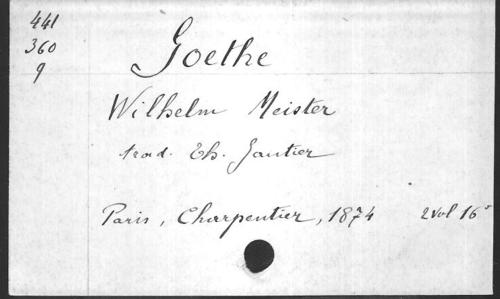 441
360
9
Goethe
Wilhelm Meister
trad. Th. Gautier
Paris, Charpentier, 1874 2 vol 16°